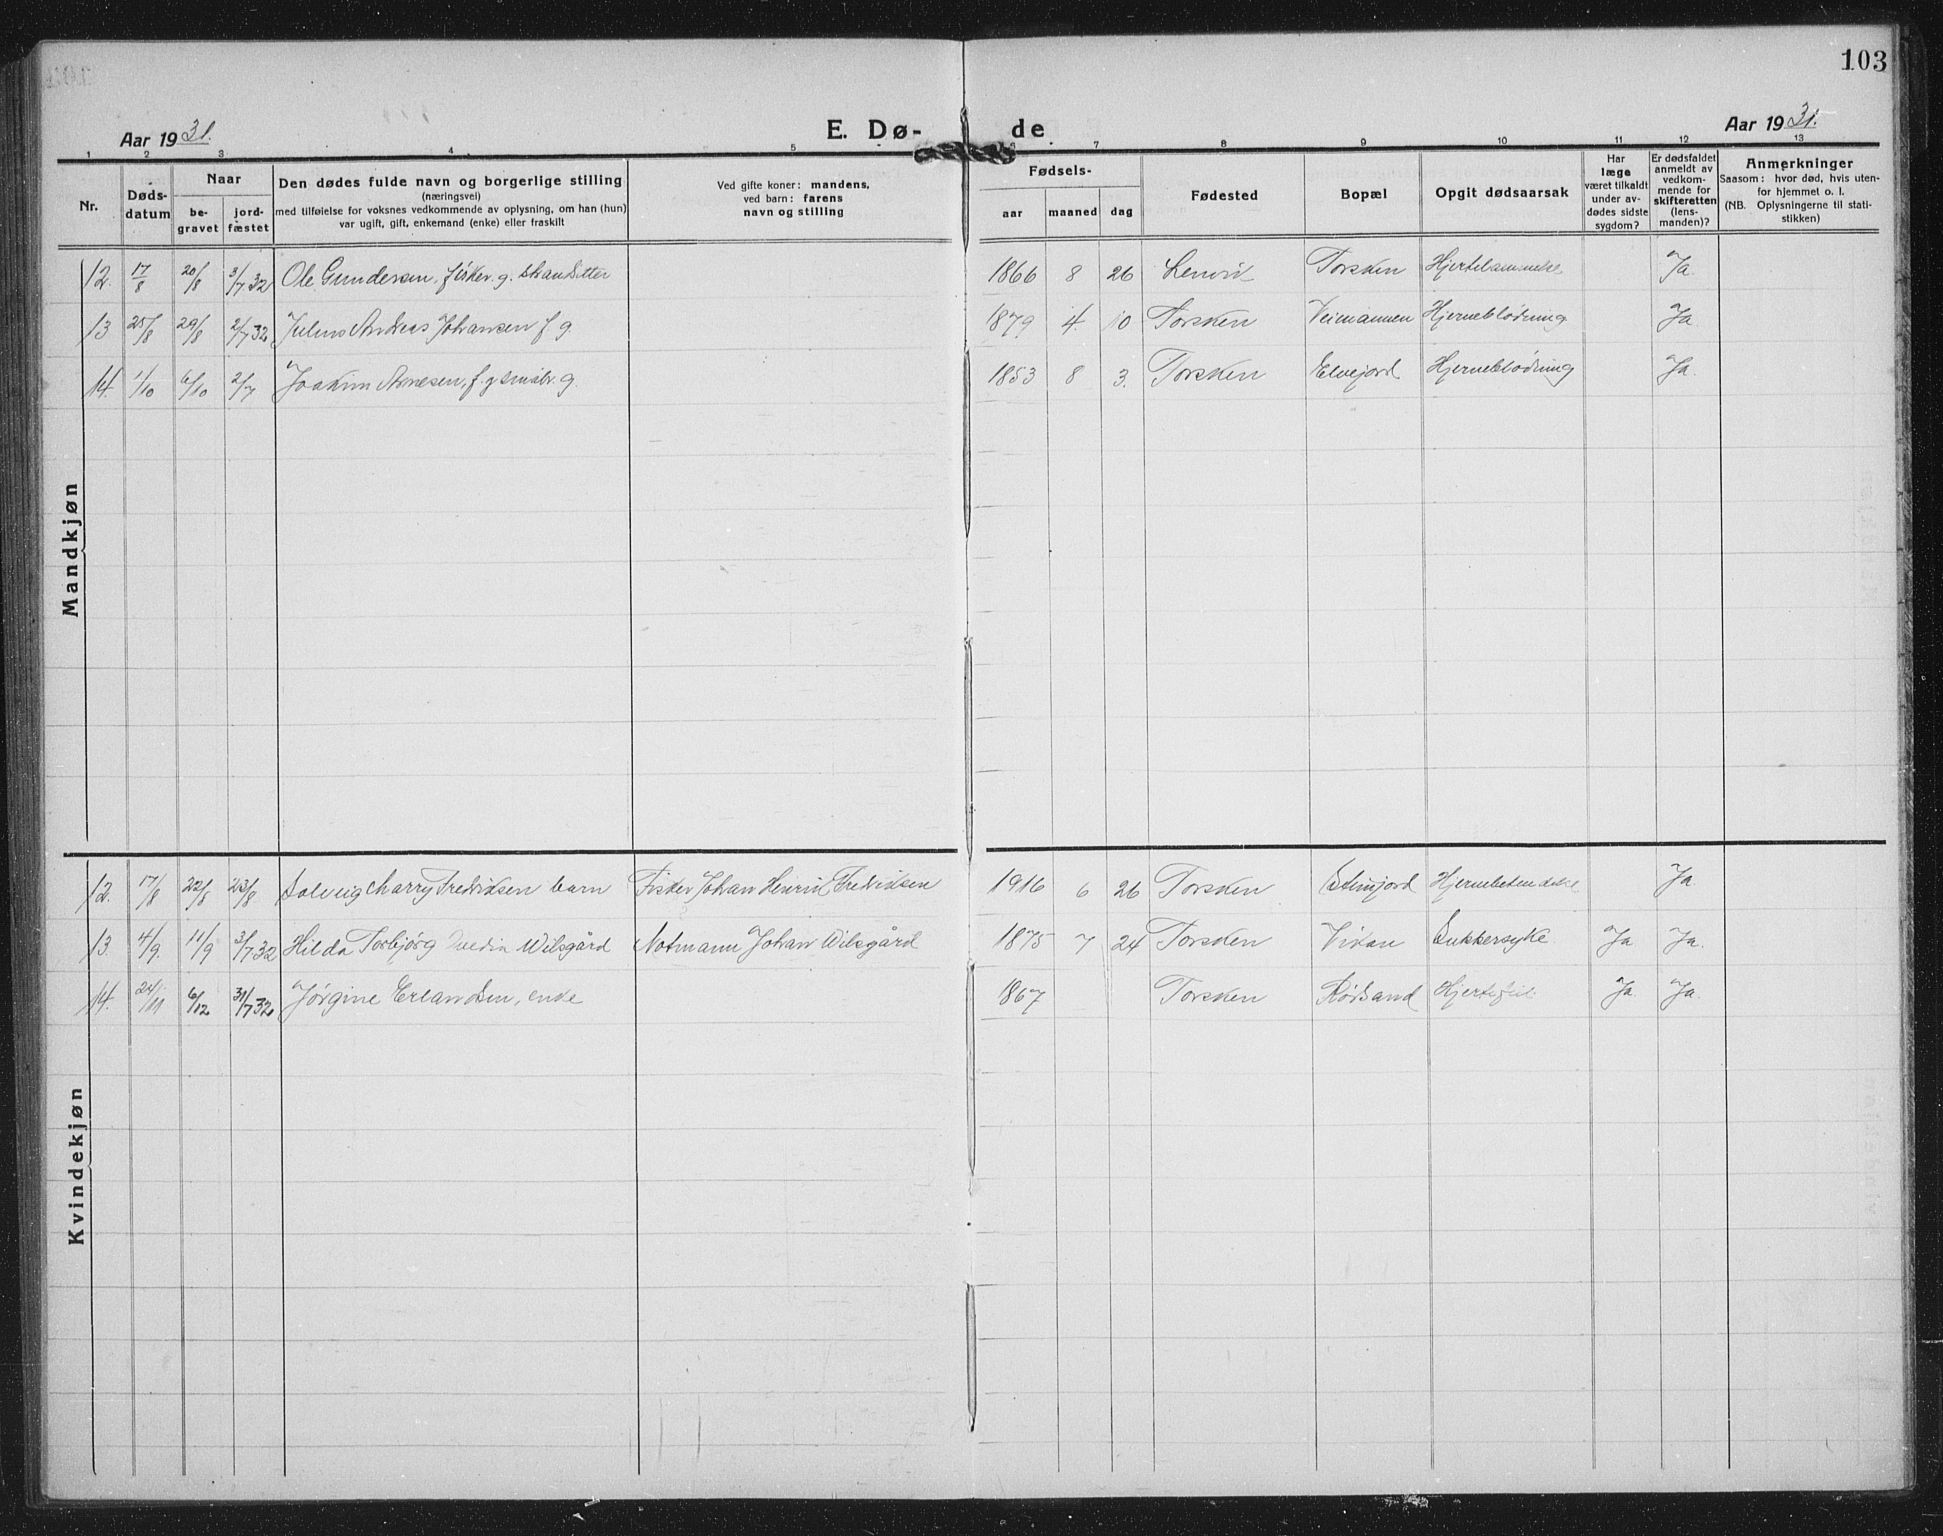 103
Aar 1931. E. Dø- de Aar 1931.
1 2 3 4 5 6 7 8 9 10 11 12 13
Nr.
Døds-
datum
Naar
be-
gravet
jord-
fæstet
Den dødes fulde navn og borgerlige stilling
(næringsvei)
med tilføielse for voksnes vedkommende av oplysning, om han (hun)
var ugift, gift, enkemand (enke) eller fraskilt
Ved gifte koner: mandens,
ved barn: farens
navn og stilling
Fødsels-
aar maaned dag
Fødested
Bopæl
Opgit dødsaarsak
Har
læge
været tilkaldt
under av-
dødes sidste
sygdom?
Er dødsfaldet
anmeldt av
vedkom-
mende for
skifteretten
(lens-
manden)?
Anmerkninger
Saasom: hvor død, hvis uten-
for hjemmet o. l.
(NB. Oplysningerne til stati-
stikken)
Mandkjøn
12. 17/8 20/8 3/7 32 Ole Gundersen, fisker. g. 1866 8 26 Lenvik Torsken Hjertelammelse Ja
13 25/8 29/8 2/7 32 Julius Andreas Johansen f. g. 1879 4. 10 Torsken Veimannen Hjerneblødning Ja
14. 1/10 6/10 2/7 Joakim Arnesen, f. g småbr. g. 1853 8 3. Torsken Elvejord Hjerneblødning Ja.
Kvindekjøn
12. 17/8 22/8 23/8 Solveig Marry Fredriksen barn Fisker Johan Henrik Fredriksen 1916 6 26 Torsken Hjernebetendelse Ja
13. 4/9. 11/9 31/7 32 Hilda Torbjørg Wilsgård Notmann Johan Wilsgård 1875 7 24 Torsken Vikan Sukkersyke Ja Ja.
14. 24/11 6/12 31/7 32 Jørgine Erlandsen, enke 1867 Torsken Rødsand Hjertefeil Ja. Ja.